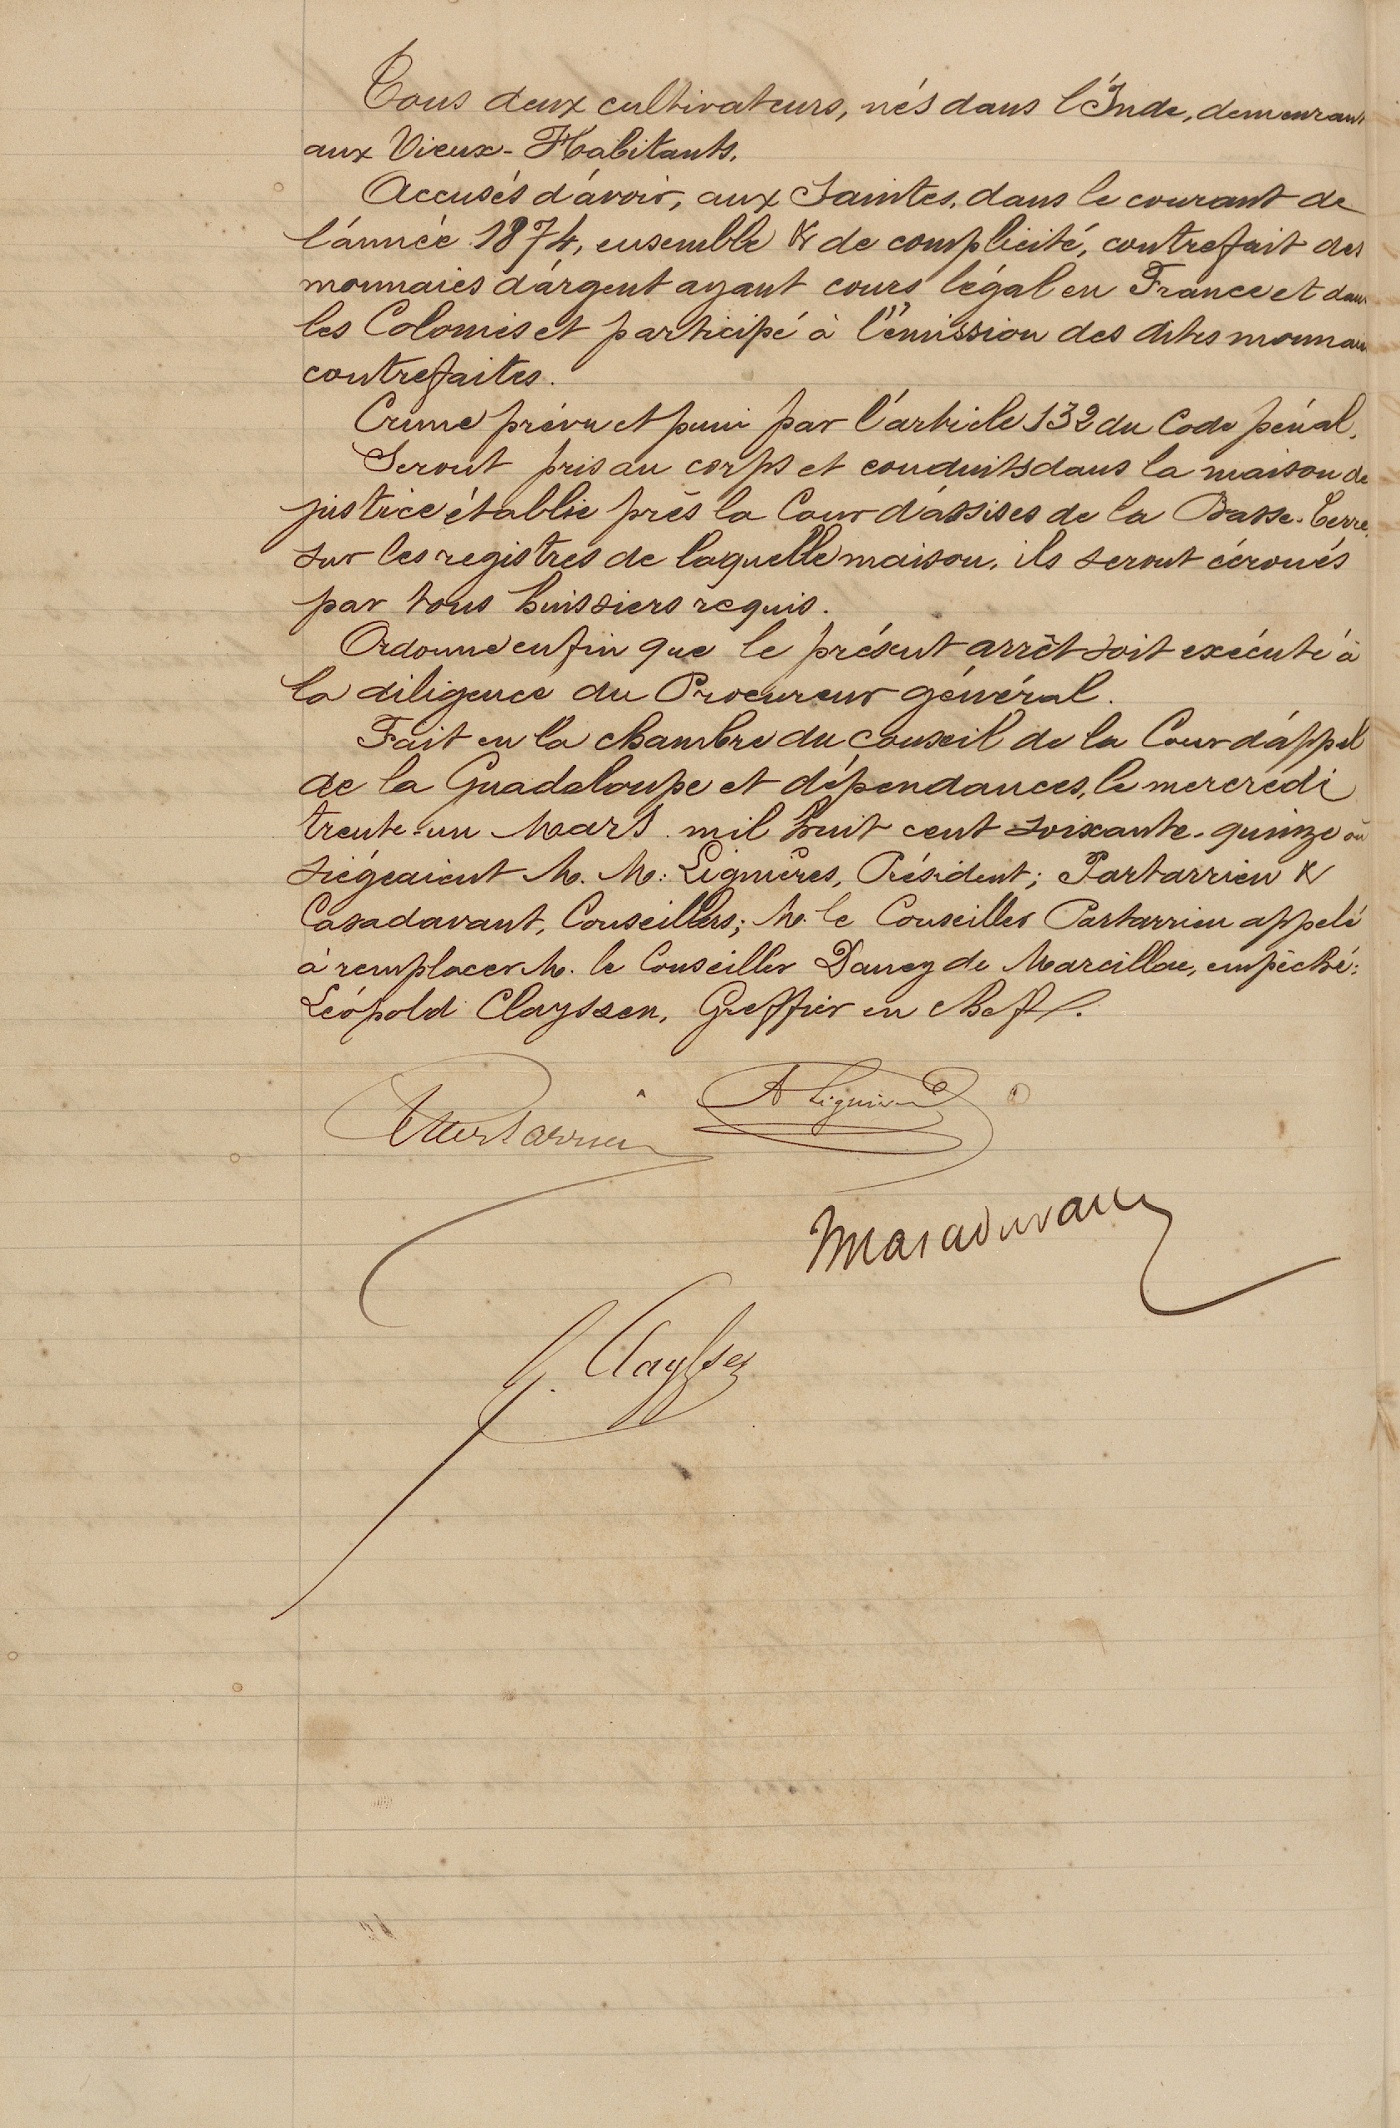 Tous deux cultivateurs, nés dans l'Inde, demeurant
aux Vieux-Habitants.
Accusés d'avoir, aux Saintes, dans le courant de
l'année 1874, ensemble & de complicité, contrefait des
monnaies d'argent ayant cours légal en France et dans
les Colonies et participé à l'émission des dites monnaies
contrefaites.
Crime prévu et puni par l'article 132 du Code pénal.
Seront pris au corps et conduits dans la maison de
justice établie près la Cour d'assises de la Basse-Terre,
sur les registres de laquelle maison, ils seront écroués
par tous huissiers requis.
Ordonne enfin que le présent arrêt soit exécuté à
la diligence du Procureur général.
Fait en la chambre du conseil de la Cour d'appel
de la Guadeloupe et dépendances, le mercredi
trente-un Mars mil huit cent soixante-quinze où
siégeaient M. M: Lignières, Président; Partarrieu &
Casadavant, Conseillers; M. le Conseiller Partarrieu appelé
à remplacer M. le Conseiller Dancy de Marcillac, empêché:
Léopold Clayssen, Greffier en chef.
Partarrieu
A Lignières
Casadavant
L. Clayssen